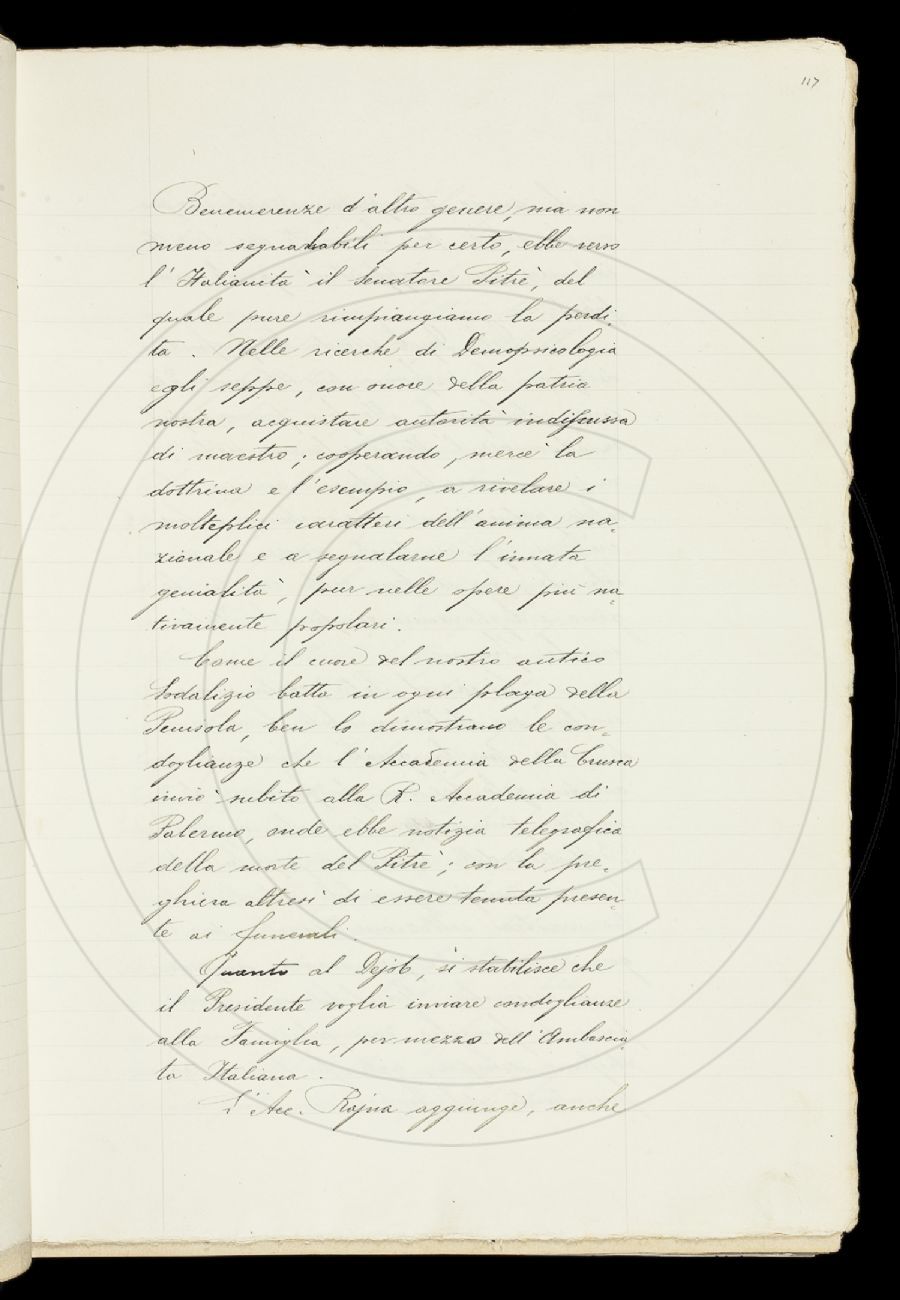 117
Benemerenze d'altro genere, ma non
meno segnalabili per certo, ebbe verso
l'Italianità il Senatore Pitrè, del
quale pure rimpiangiamo la perdi-
ta. Nelle ricerche di Demopsicologia
egli seppe, con onore della patria
nostra, acquistare autorità indiscussa
di maestro; cooperando, mercè la
dottrina e l'esempio, a rivelare i
molteplici caratteri dell'anima na-
zionale e a segnalarne l'innata
genialità, pur nelle opere più na-
tivamente popolari.
Come il cuore del nostro antico
Sodalizio batta in ogni plaga della
Penisola, ben lo dimostrano le con-
doglianze che l'Accademia della Crusca
inviò subito alla R. Accademia di
Palermo, onde ebbe notizia telegrafica
della morte del Pitrè; con la pre-
ghiera altresì di essere tenuta presen-
te ai funerali.
Quanto al Dejob, si stabilisce che
il Presidente voglia inviare condoglianze
alla Famiglia, per mezzo dell'Ambascia-
ta Italiana.
L'Acc. Rajna aggiunge, anche